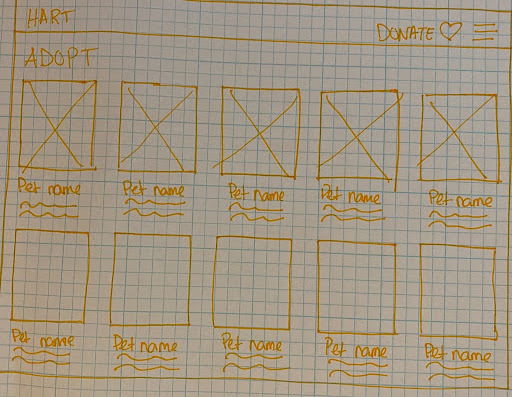 HART
DONATE
ADOPT
Pet name Pet name Pet name Pet name Pet name
Pet name Pet name Pet name Pet name Pet name